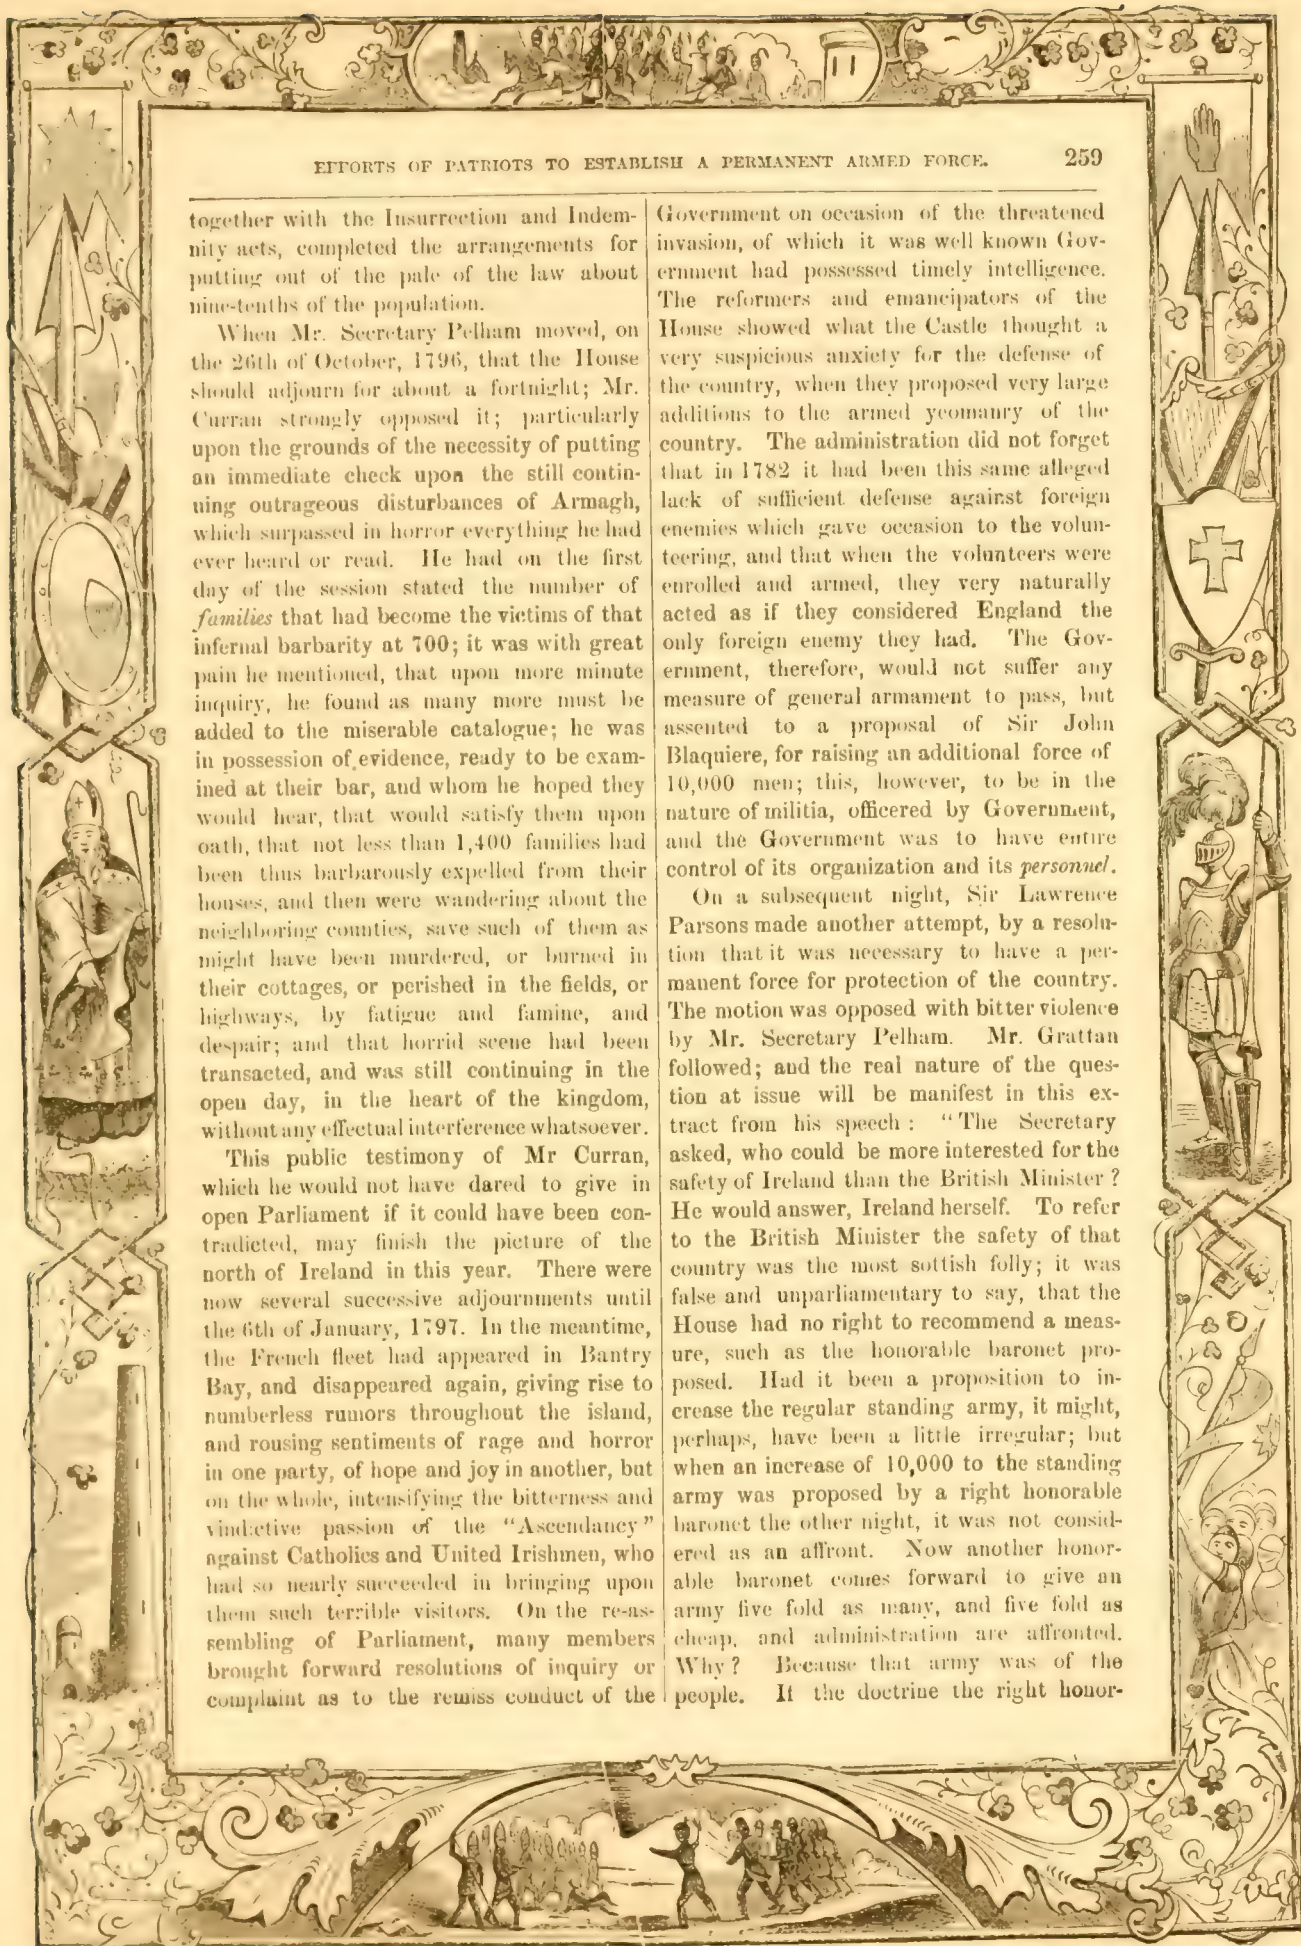 EFFORTS OF PATRIOTS TO ESTABLISH A PERMANENT ARMED FORCE. 259
together with the Insurrection and Indem-
nity acts, completed the arrangements for
putting out of the pale of the law about
nine-tenths of the population.
When Mr. Secretary Pelham moved, on
the 26th of October, 1796, that the House
should adjourn for about a fortnight; Mr.
Curran strongly opposed it; particularly
upon the grounds of the necessity of putting
an immediate check upon the still contin-
uing outrageous disturbances of Armagh,
which surpassed in horror everything he had
ever heard or read. He had on the first
day of the session stated the number of
families that had become the victims of that
infernal barbarity at 700; it was with great
pain he mentioned, that upon more minute
inquiry, he found as many more must be
added to the miserable catalogue; he was
in possession of evidence, ready to be exam-
ined at their bar, and whom he hoped they
would hear, that would satisfy them upon
oath, that not less than 1,400 families had
been thus barbarously expelled from their
houses, and then were wandering about the
neighboring counties, save such of them as
might have been murdered, or burned in
their cottages, or perished in the fields, or
highways, by fatigue and famine, and
despair; and that horrid scene had been
transacted, and was still continuing in the
open day, in the heart of the kingdom,
without any effectual interference whatsoever.
This public testimony of Mr Curran,
which he would not have dared to give in
open Parliament if it could have been con-
tradicted, may finish the picture of the
north of Ireland in this year. There were
now several successive adjournments until
the 6th of January, 1797. In the meantime,
the French fleet had appeared in Bantry
Bay, and disappeared again, giving rise to
numberless rumors throughout the island,
and rousing sentiments of rage and horror
in one party, of hope and joy in another, but
on the whole, intensifying the bitterness and
vindictive passion of the "Ascendancy"
against Catholics and United Irishmen, who
had so nearly succeeded in bringing upon
them such terrible visitors. On the re-as-
sembling of Parliament, many members
brought forward resolutions of inquiry or
complaint as to the remiss conduct of the
Government on occasion of the threatened
invasion, of which it was well known Gov-
ernment had possessed timely intelligence.
The reformers and emancipators of the
House showed what the Castle thought a
very suspicious anxiety for the defense of
the country, when they proposed very large
additions to the armed yeomanry of the
country. The administration did not forget
that in 1782 it had been this same alleged
lack of sufficient defense against foreign
enemies which gave occasion to the volun-
teering, and that when the volunteers were
enrolled and armed, they very naturally
acted as if they considered England the
only foreign enemy they had. The Gov-
ernment, therefore, would not suffer any
measure of general armament to pass, but
assented to a proposal of Sir John
Blaquiere, for raising an additional force of
10,000 men; this, however, to be in the
nature of militia, officered by Government,
and the Government was to have entire
control of its organization and its personnel.
On a subsequent night, Sir Lawrence
Parsons made another attempt, by a resolu-
tion that it was necessary to have a per-
manent force for protection of the country.
The motion was opposed with bitter violence
by Mr. Secretary Pelham. Mr. Grattan
followed; and the real nature of the ques-
tion at issue will be manifest in this ex-
tract from his speech: "The Secretary
asked, who could be more interested for the
safety of Ireland than the British Minister?
He would answer, Ireland herself. To refer
to the British Minister the safety of that
country was the most sottish folly; it was
false and unparliamentary to say, that the
House had no right to recommend a meas-
ure, such as the honorable baronet pro-
posed. Had it been a proposition to in-
crease the regular standing army, it might,
perhaps, have been a little irregular; but
when an increase of 10,000 to the standing
army was proposed by a right honorable
baronet the other night, it was not consid-
ered as an affront. Now another honor-
able baronet comes forward to give an
army five fold as many, and five fold as
cheap, and administration are affronted.
Why? Because that army was of the
people. If the doctrine the right honor-